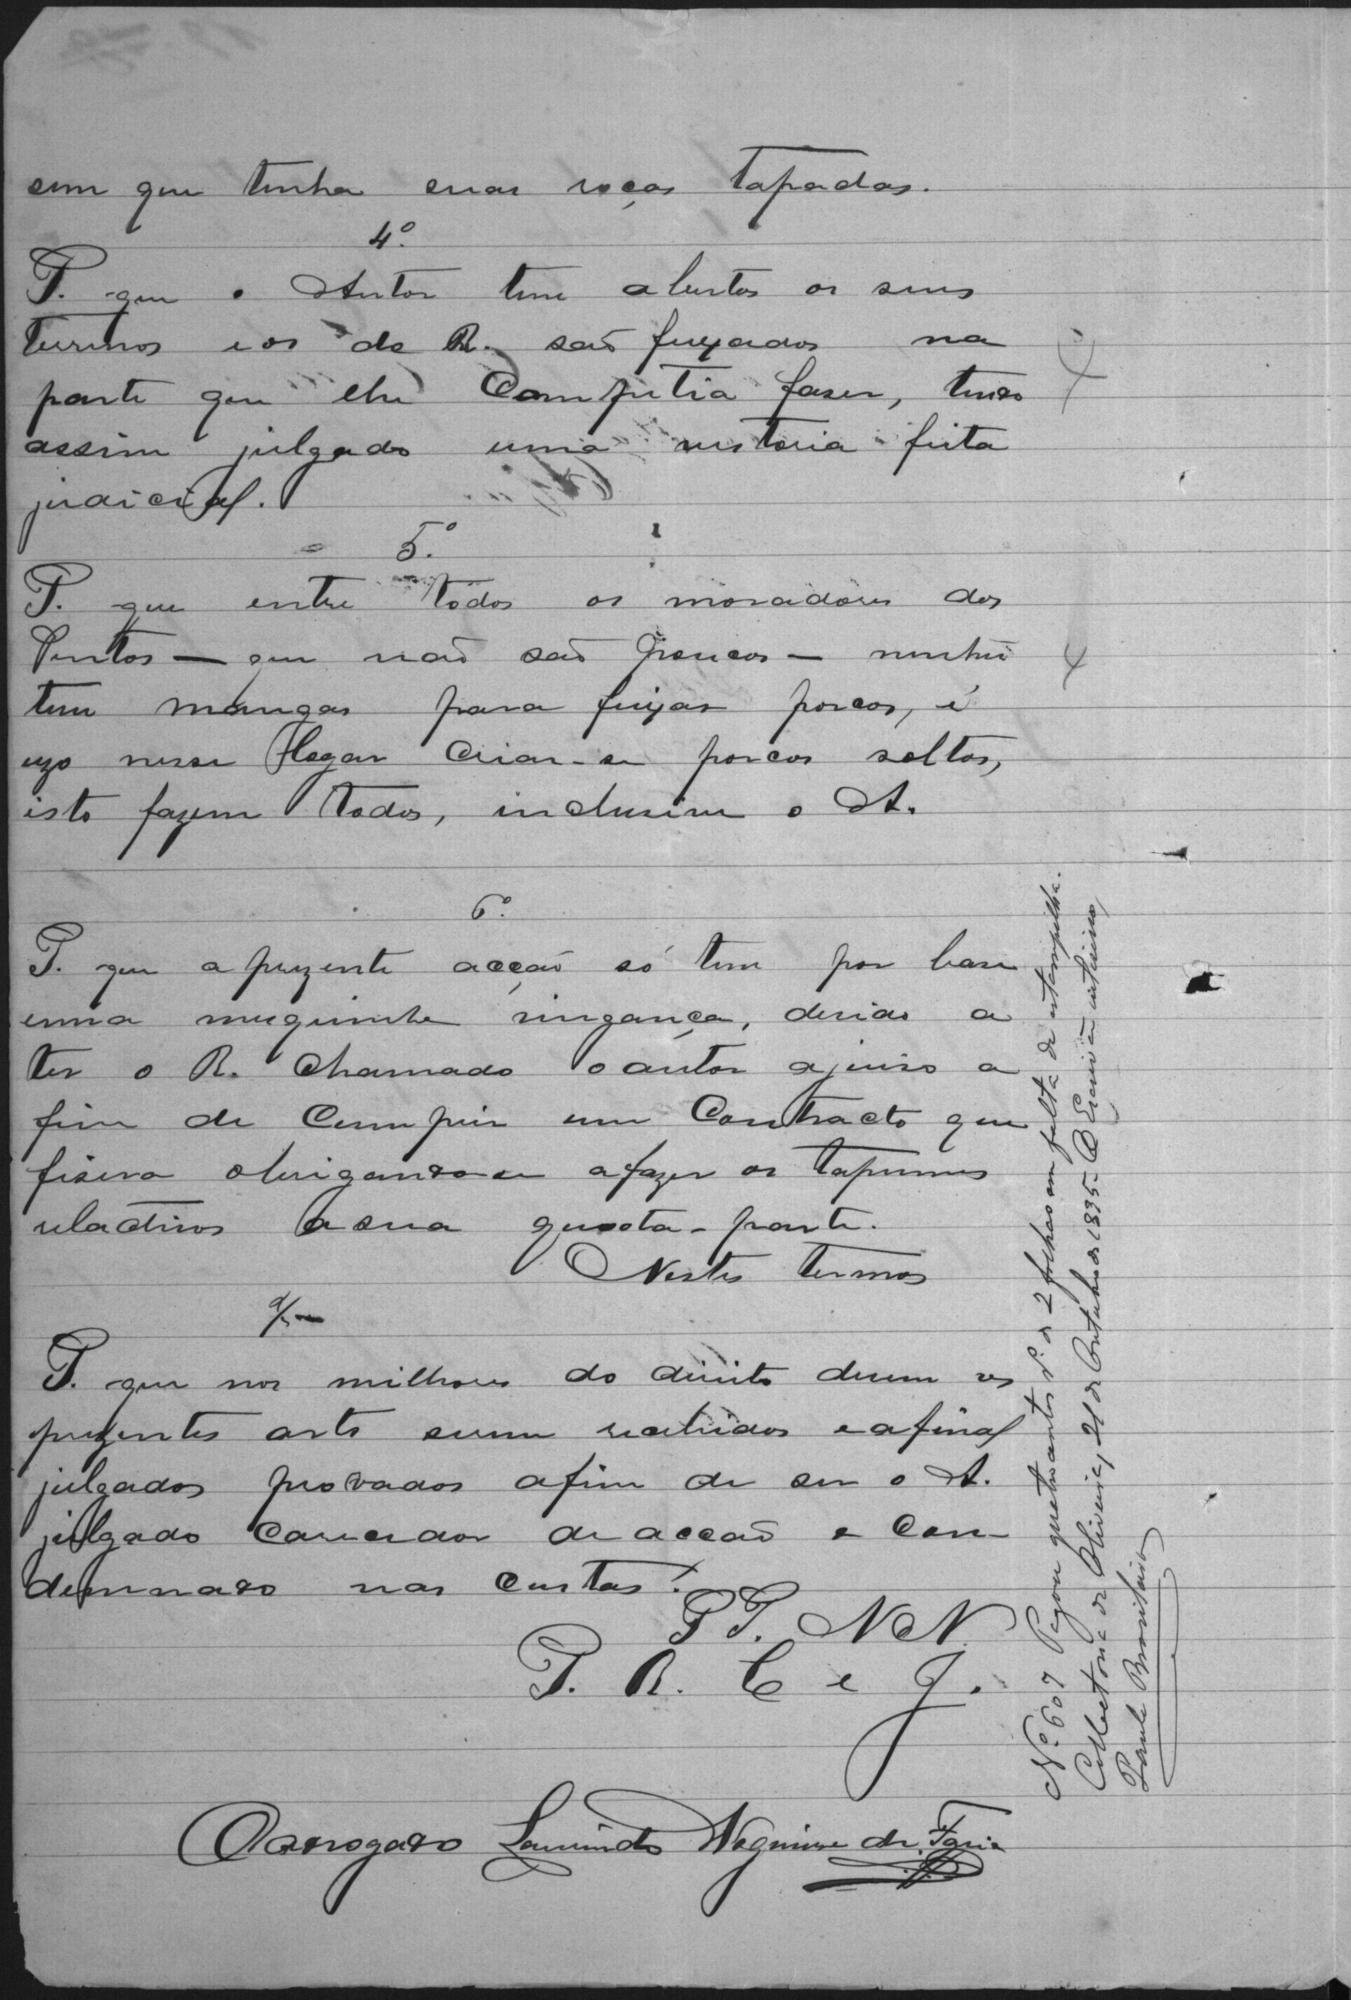 sem que tenha suas roças tapadas.
4º
P. que o Autor tem abertos os seus
terrenos e os do R. são feixados na
parte que lhe Competia faser, tendo
assim julgado uma vistoria feita
judicial.
5º
P. que entre todos os moradores dos
Pintos — que não são poucos — nenhũ
tem mangas para feixar porcos, é
uzo nesse logar criar-se porcos soltos,
isto fazem todos, inclusive o A.
6º
P. que a prezente acção só tem por base
uma mesquinha vingança, devido a
ter o R. chamado o autor a juiso a
fim de Cumprir um Contracto que
fisera obrigando-se a fazer os tapumes
relactivos a sua quota-parte.
Nestes termos
P. que nos milhores do direito devem os
prezentes arts serem recebidos e afinal
julgados provados afim de ser o A.
julgado carecedor de acção e con-
demnado nas custas.
P P. N N.
P. R. C e J.
O advogado Laurindo Nogueira de Faria
Nº 607 Pagou quatrocentos rs. de 2 folhas em falta de estampilha.
Collectoria de Oliveira, 21 de Outubro de 1895. O Escrivão interino,
Paulo Brasileiro